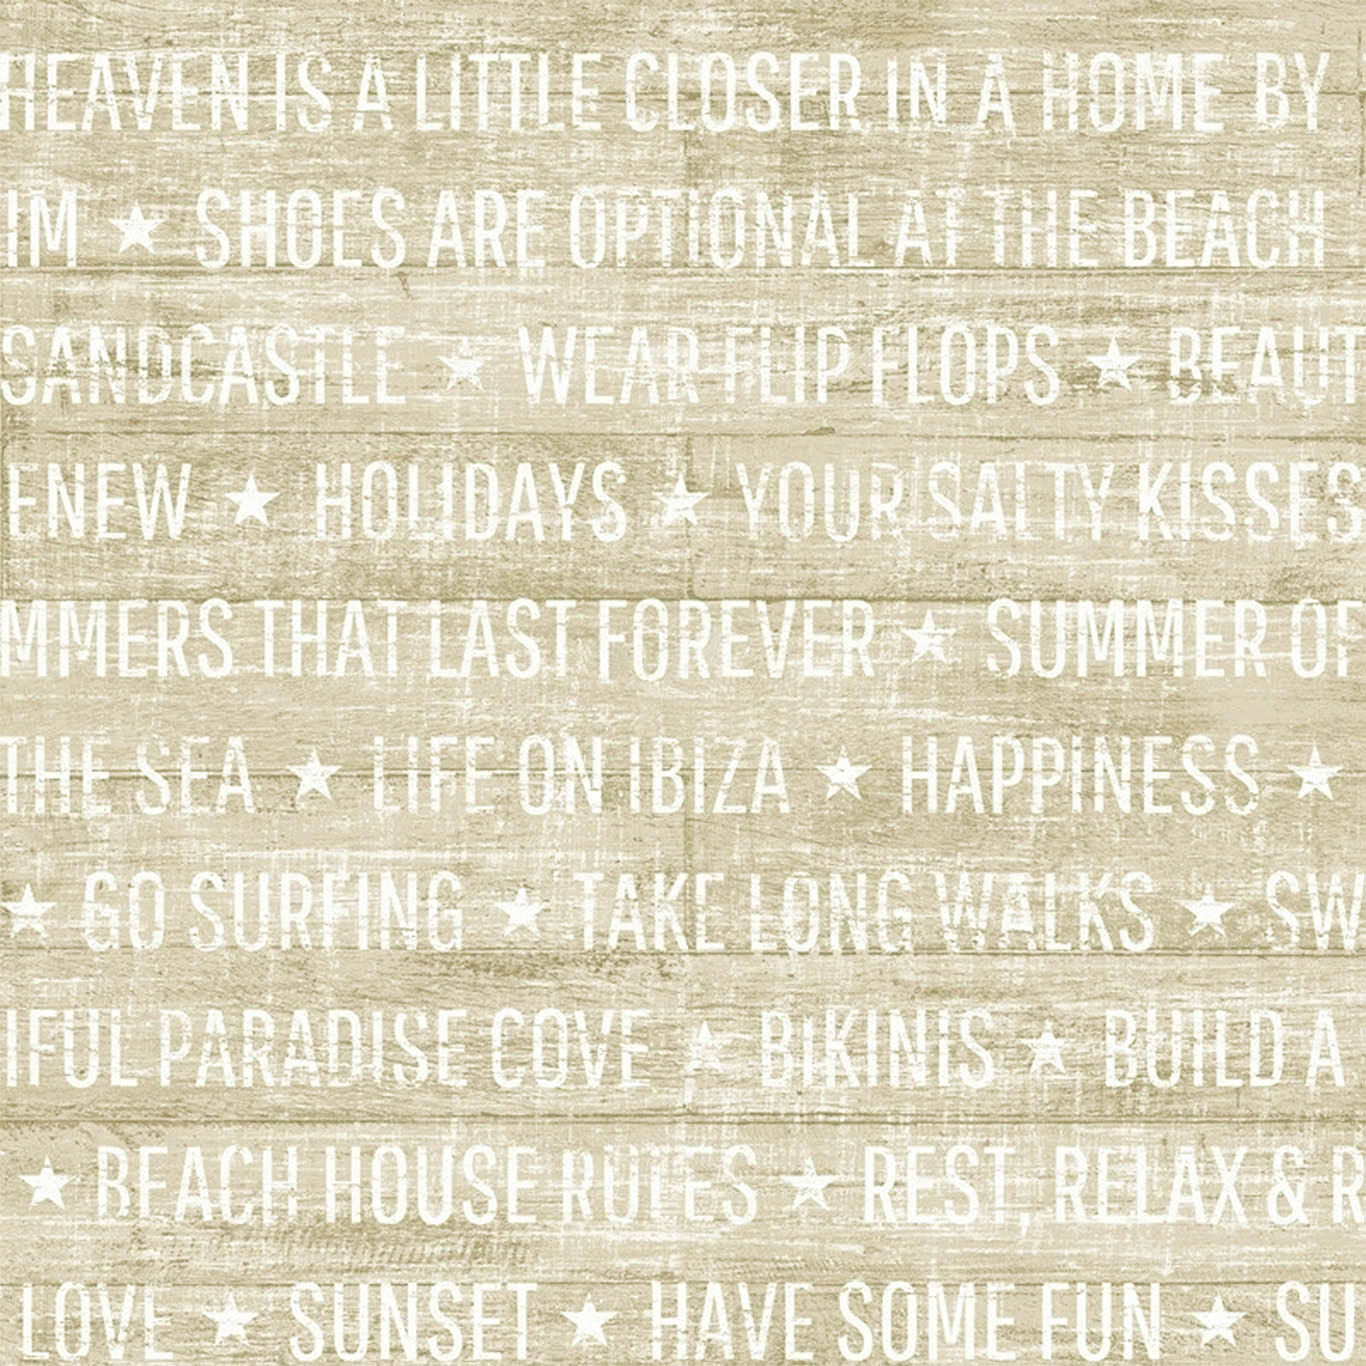 HEAVEN IS A LITTLE CLOSER IN A HOME BY
IM ★ SHOES ARE OPTIONAL AT THE BEACH
SANDCASTLE ★ WEAR FLIP FLOPS ★ BEAUT
ENEW ★ HOLIDAYS ★ YOUR SALTY KISSES
MMERS THAT LAST FOREVER ★ SUMMER OF
THE SEA ★ LIFE ON IBIZA ★ HAPPINESS ★
★ GO SURFING ★ TAKE LONG WALKS ★ SW
IFUL PARADISE COVE ★ BIKINIS ★ BUILD A
★ BEACH HOUSE RULES ★ REST, RELAX & R
LOVE ★ SUNSET ★ HAVE SOME FUN ★ SU